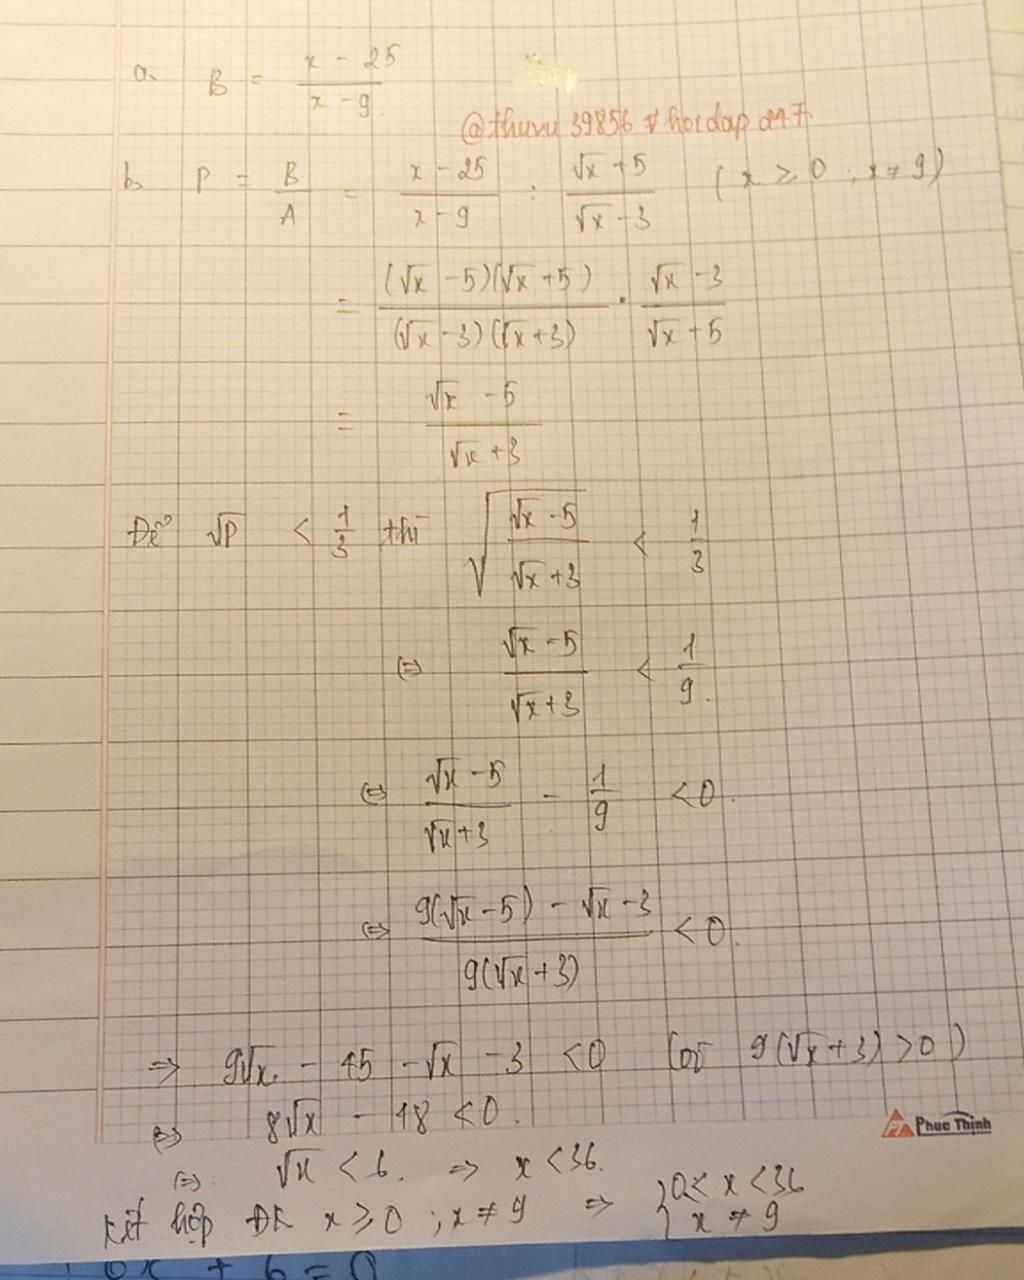 a. B = \frac{x - 25}{x - 9}
@thuvu39856 # hoidap247
b. P = \frac{B}{A} = \frac{x - 25}{x - 9} : \frac{\sqrt{x} + 5}{\sqrt{x} - 3} (x ≥ 0 ; x ≠ 9)
= \frac{(\sqrt{x} - 5)(\sqrt{x} + 5)}{(\sqrt{x} - 3)(\sqrt{x} + 3)} . \frac{\sqrt{x} - 3}{\sqrt{x} + 5}
= \frac{\sqrt{x} - 5}{\sqrt{x} + 3}
Để \sqrt{P} < \frac{1}{3} thì \sqrt{\frac{\sqrt{x} - 5}{\sqrt{x} + 3}} < \frac{1}{3}
(=) \frac{\sqrt{x} - 5}{\sqrt{x} + 3} < \frac{1}{9}.
(=) \frac{\sqrt{x} - 5}{\sqrt{x} + 3} - \frac{1}{9} < 0.
(=) \frac{9(\sqrt{x} - 5) - \sqrt{x} - 3}{9(\sqrt{x} + 3)} < 0.
=> 9\sqrt{x} - 45 - \sqrt{x} - 3 < 0 (do 9(\sqrt{x} + 3) > 0)
(=) 8\sqrt{x} - 48 < 0.
Phuc Thinh
(=) \sqrt{x} < 6. => x < 36.
Kết hợp ĐK x ≥ 0 ; x ≠ 9 => { 0 < x < 36
x ≠ 9
6x + 6 = 0